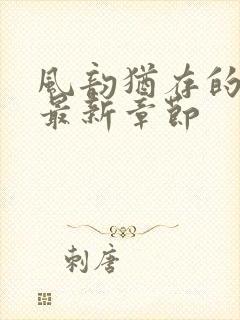 風韵猶存的
最新章節
刺唐